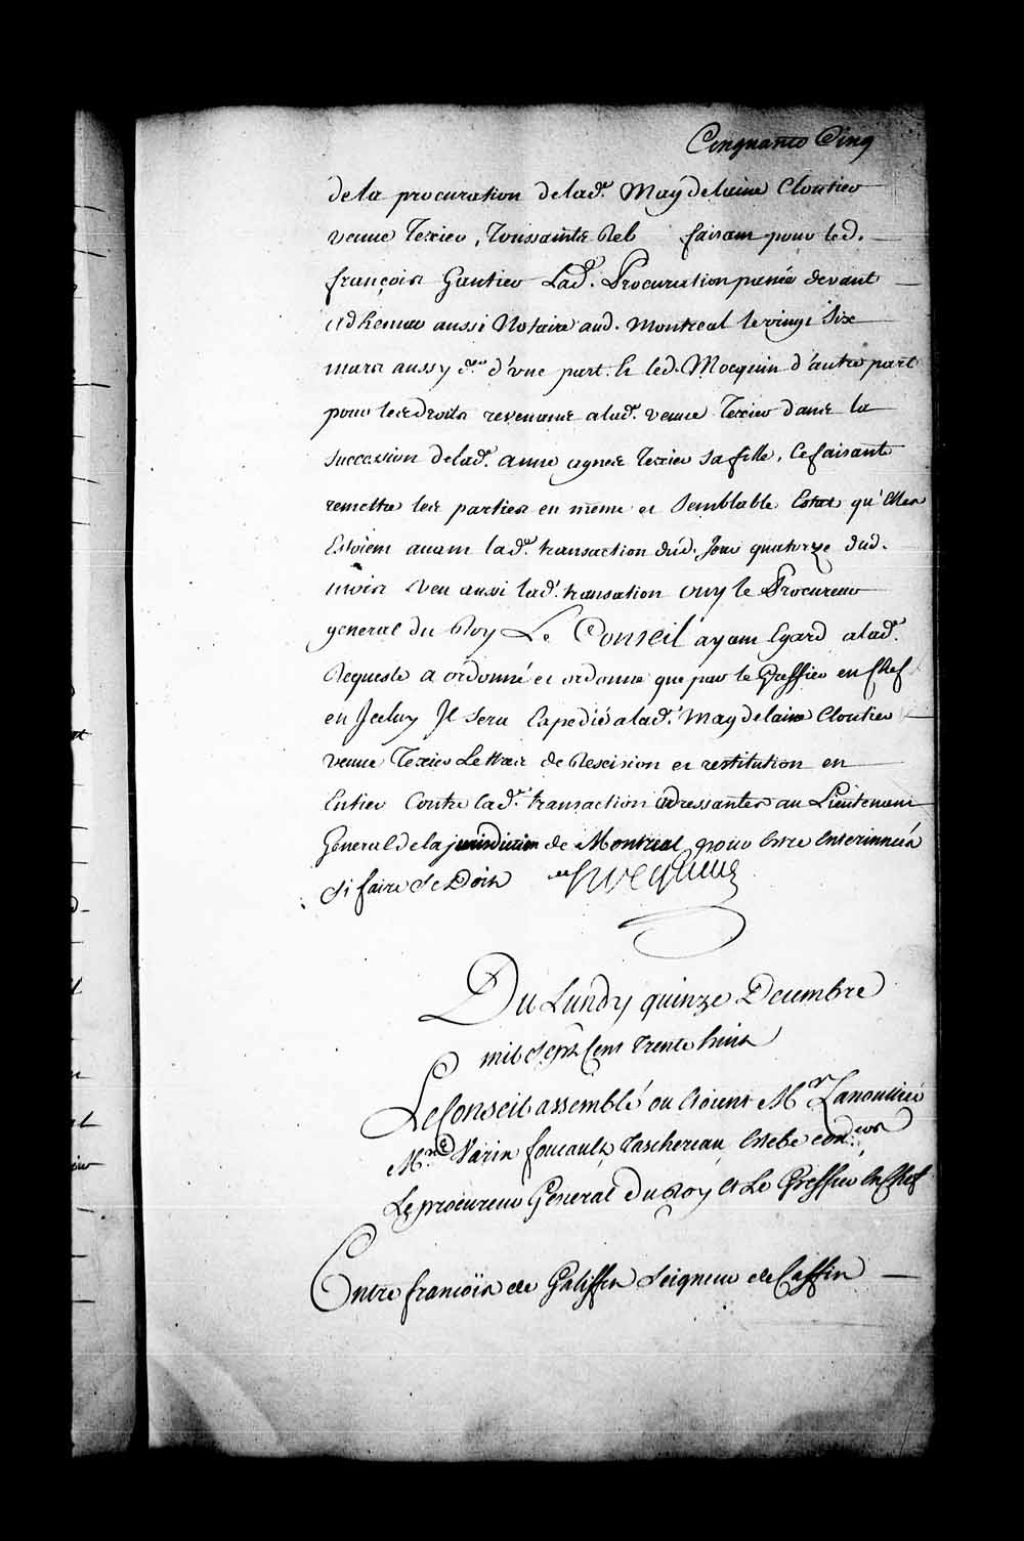 Cinquante Cinq
de la procuration de lade. Magdelaine Cloutier
veuve Texier, Toussainte Reb faisant pour led.
françois Gautier Lade. Procuration passée devant
adhemar aussi Notaire aud. Montreal le vingt Six
mars aussy der. d'une part. Et led. Mocquin d'autre part
pour les droits revenants a lade. veuve Texier dans la
succession de lade. anne agnes Texier sa fille, Ce faisant
remettre les parties en même et Semblable Estat qu'Elles
Estoient avant lade. transaction dud. Jour quatorze dud.
mois Veu aussi lade. transation ouy le Procureur
general du Roy Le Conseil ayant Egard a lade.
Requeste a ordonné et ordonne que par le Greffier en Chef
en Jceluy Jl sera Expedié a lade. Magdelaine Cloutier
veuve Texier Lettres de Rescision et restitution en
Entier Contre lade. transaction adressantes au Lieutenant
General de la jurisdiction de Montreal pour Estre Enterinnées
Si faire Se Doit hocquart
Du Lundy quinze Decembre
mil Sept Cent Trente huit
Le Conseil assemblé ou Etoient Mr. Lanoullier
Mrs. Varin foucault, Taschereau, Estebe coners.
Le procureur General Du Roy et Le Greffier En Chef
Entre françois de Galiffet Seigneur de Caffin